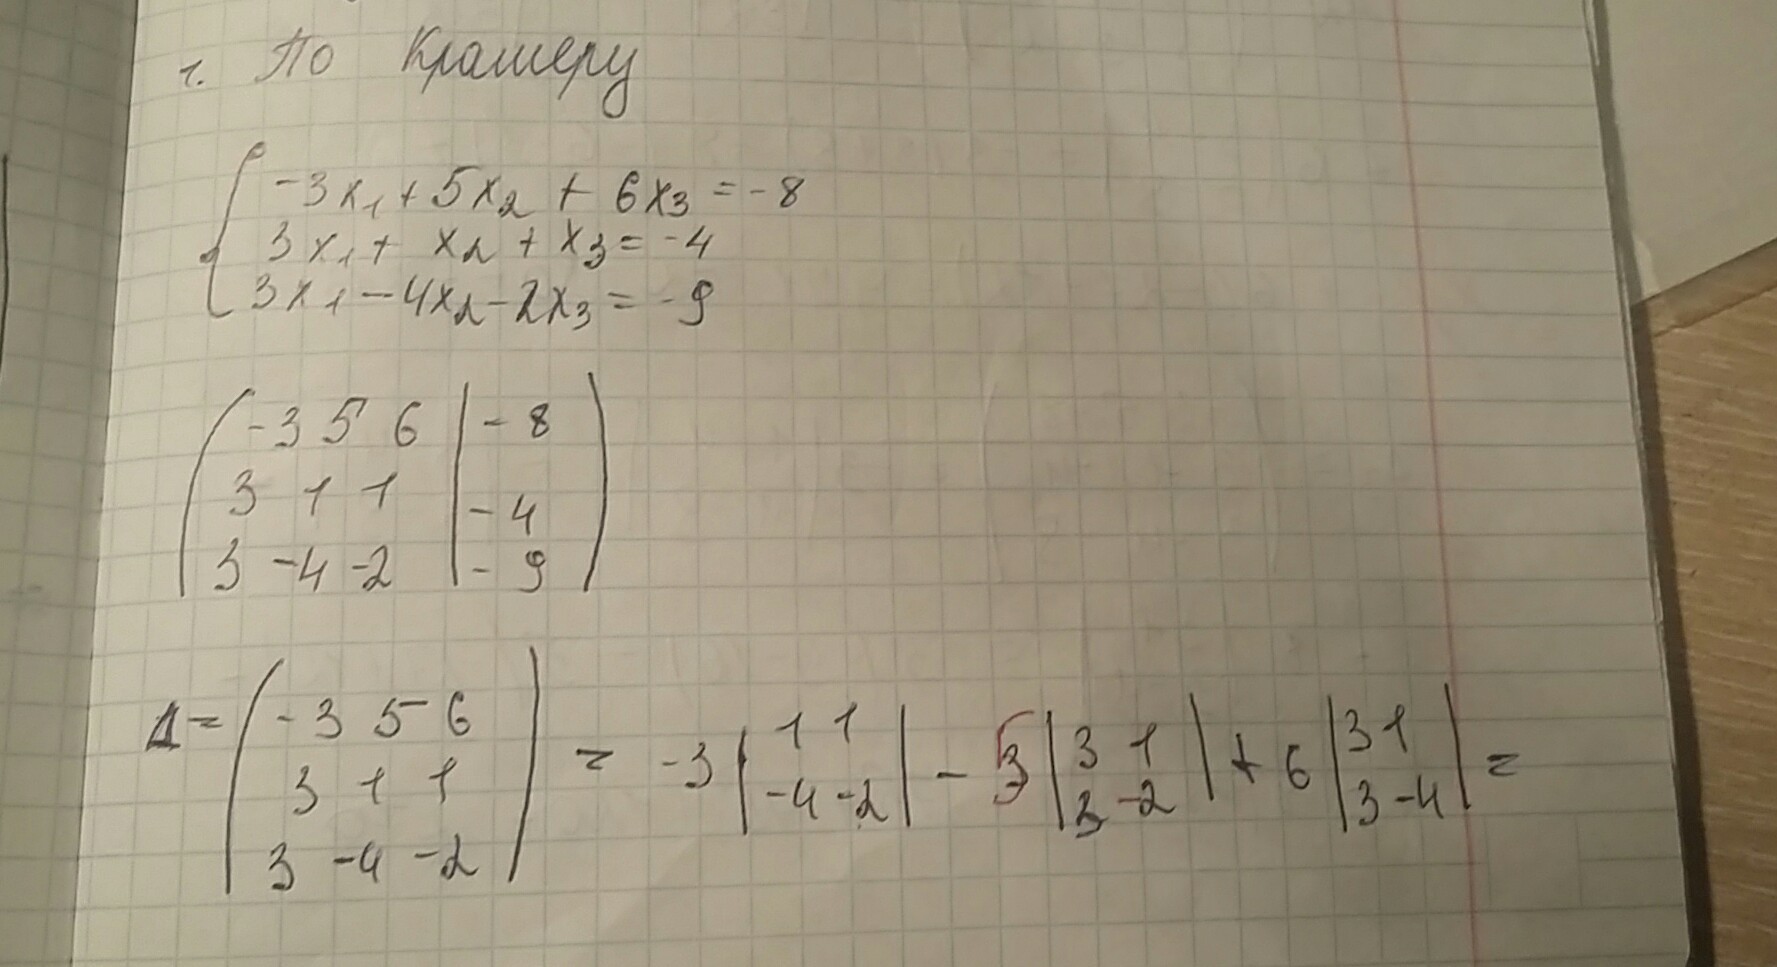 1. По Крамеру
-3x₁ + 5x₂ + 6x₃ = -8
3x₁ + x₂ + x₃ = -4
3x₁ - 4x₂ - 2x₃ = -9
-3 5 6 | -8
3 1 1 | -4
3 -4 -2 | -9
Δ = ( -3 5 6 ) = -3 | 1 1 | - 5 | 3 1 | + 6 | 3 1 | =
3 1 1 -4 -2 3 -2 3 -4
3 -4 -2